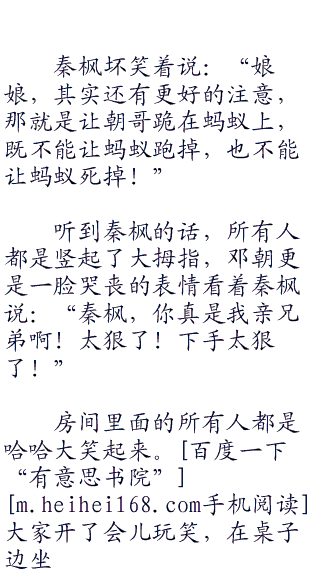 秦枫坏笑着说：“娘
娘，其实还有更好的注意，
那就是让朝哥跪在蚂蚁上，
既不能让蚂蚁跑掉，也不能
让蚂蚁死掉！”
听到秦枫的话，所有人
都是竖起了大拇指，邓朝更
是一脸哭丧的表情看着秦枫
说：“秦枫，你真是我亲兄
弟啊！太狠了！下手太狠
了！”
房间里面的所有人都是
哈哈大笑起来。[百度一下
“有意思书院”]
[m.heihei168.com手机阅读]
大家开了会儿玩笑，在桌子
边坐